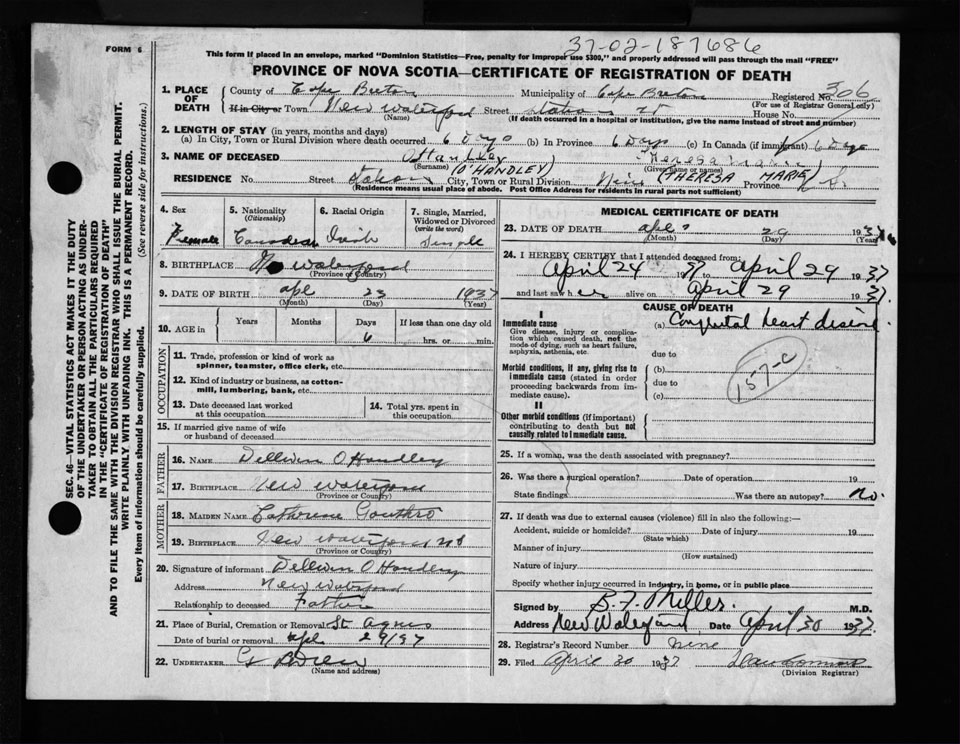 37-02-187686
FORM 6
This form if placed in an envelope, marked "Dominion Statistics—Free, penalty for improper use $300," and properly addressed will pass through the mail "FREE"
PROVINCE OF NOVA SCOTIA—CERTIFICATE OF REGISTRATION OF DEATH
SEC. 46—VITAL STATISTICS ACT MAKES IT THE DUTY
OF THE UNDERTAKER OR PERSON ACTING AS UNDER-
TAKER TO OBTAIN ALL THE PARTICULARS REQUIRED
IN THE "CERTIFICATE OF REGISTRATION OF DEATH"
AND TO FILE THE SAME WITH THE DIVISION REGISTRAR WHO SHALL ISSUE THE BURIAL PERMIT.
WRITE PLAINLY WITH UNFADING INK. THIS IS A PERMANENT RECORD.
Every item of information should be carefully supplied. (See reverse side for instructions.)
1. PLACE OF DEATH County of Cape Breton Municipality of Cape Breton Registered No. 306
(For use of Registrar General only)
If in City or Town New Waterford Street Station St House No.
(Name) (If death occurred in a hospital or institution, give the name instead of street and number)
2. LENGTH OF STAY (in years, months and days)
(a) In City, Town or Rural Division where death occurred 6 Days (b) In Province 6 Days (c) In Canada (if immigrant) 6 Days
3. NAME OF DECEASED O'Handley Theresa Marie
(Surname) (O'HANDLEY) (Given name or names) (THERESA MARIE)
RESIDENCE No. Street Station City, Town or Rural Division New Province N.S.
(Residence means usual place of abode. Post Office Address for residents in rural parts not sufficient)
4. Sex Female
5. Nationality (Citizenship) Canadian
6. Racial Origin Irish
7. Single, Married, Widowed or Divorced (write the word) Single
8. BIRTHPLACE N Waterford
(Province or Country)
9. DATE OF BIRTH Apl 23 1937
(Month) (Day) (Year)
10. AGE in Years Months Days 6 If less than one day old hrs. or min.
OCCUPATION
11. Trade, profession or kind of work as spinner, teamster, office clerk, etc.
12. Kind of industry or business, as cotton-mill, lumbering, bank, etc.
13. Date deceased last worked at this occupation
14. Total yrs. spent in this occupation
15. If married give name of wife or husband of deceased
FATHER
16. NAME Dellwin O Handley
17. BIRTHPLACE New Waterford
(Province or Country)
MOTHER
18. MAIDEN NAME Catherine Gouthro
19. BIRTHPLACE New Waterford NS
(Province or Country)
20. Signature of informant Dellwin O Handley
Address New Waterford
Relationship to deceased Father
21. Place of Burial, Cremation or Removal St Agnes
Date of burial or removal Apl 29/37
22. UNDERTAKER
(Name and address)
MEDICAL CERTIFICATE OF DEATH
23. DATE OF DEATH Apl 29 1937
(Month) (Day) (Year)
24. I HEREBY CERTIFY that I attended deceased from:
April 24 1937 to April 29 1937
and last saw her alive on April 29 1937.
CAUSE OF DEATH
I
Immediate cause (a) Congenital heart disease
Give disease, injury or complication which caused death, not the mode of dying, such as heart failure, asphyxia, asthenia, etc.
due to
Morbid conditions, if any, giving rise to immediate cause (stated in order proceeding backwards from immediate cause). (b)
due to
(c)
157-C
II
Other morbid conditions (if important) contributing to death but not causally related to immediate cause.
25. If a woman, was the death associated with pregnancy?
26. Was there a surgical operation? Date of operation 19
State findings Was there an autopsy? No.
27. If death was due to external causes (violence) fill in also the following:—
Accident, suicide or homicide? Date of injury 19
(State which)
Manner of injury
(How sustained)
Nature of injury
Specify whether injury occurred in industry, in home, or in public place
Signed by B. F. Miller. M.D.
Address New Waterford Date April 30 1937.
28. Registrar's Record Number nine
29. Filed April 30 1937
(Division Registrar)